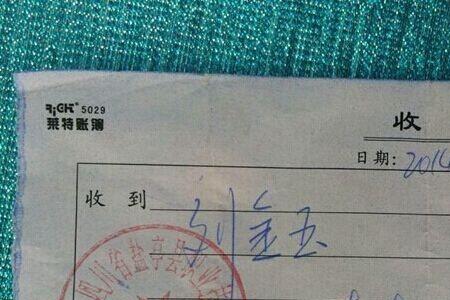 RiGHT® 5029
莱特账簿
收
日期: 2014
收到 刘金玉
四川省盐亭县